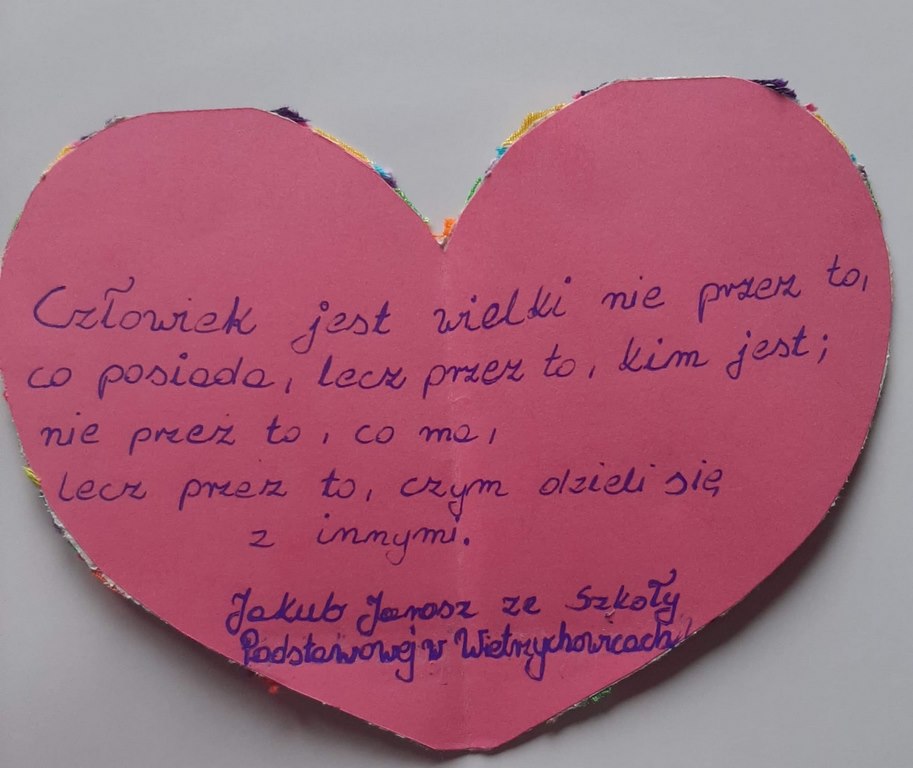 Człowiek jest wielki nie przez to,
co posiada, lecz przez to, kim jest;
nie przez to, co ma,
lecz przez to, czym dzieli się
z innymi.
Jakub Janosz ze Szkoły
Podstawowej w Wietrzychowicach